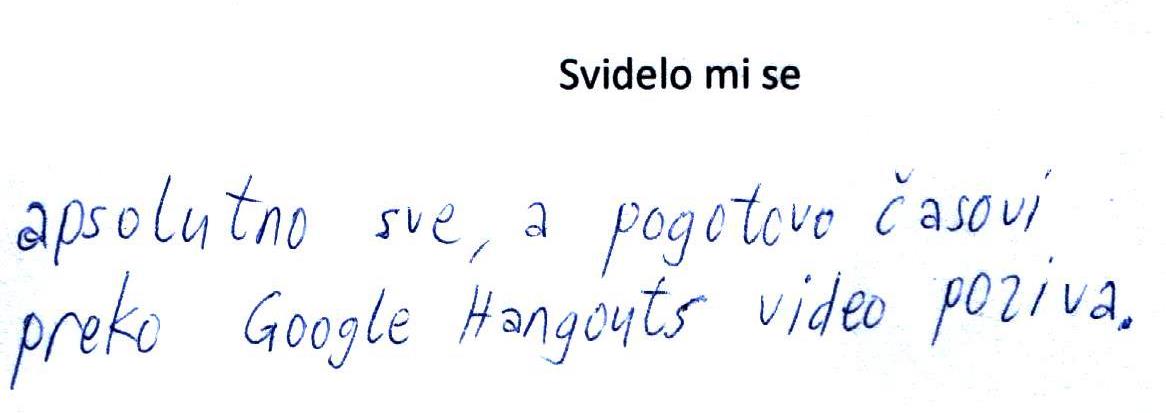 Svidelo mi se
apsolutno sve, a pogotovo časovi
preko Google Hangouts video poziva.